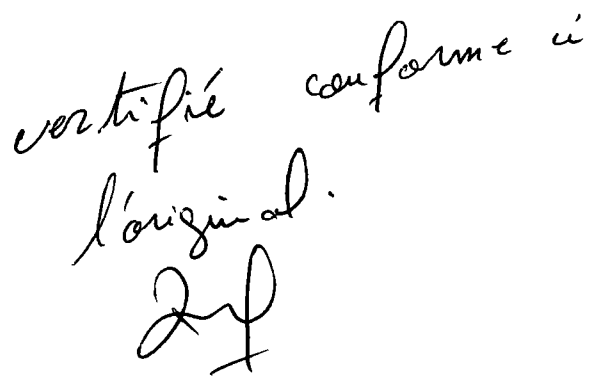 certifié conforme à
l'original.